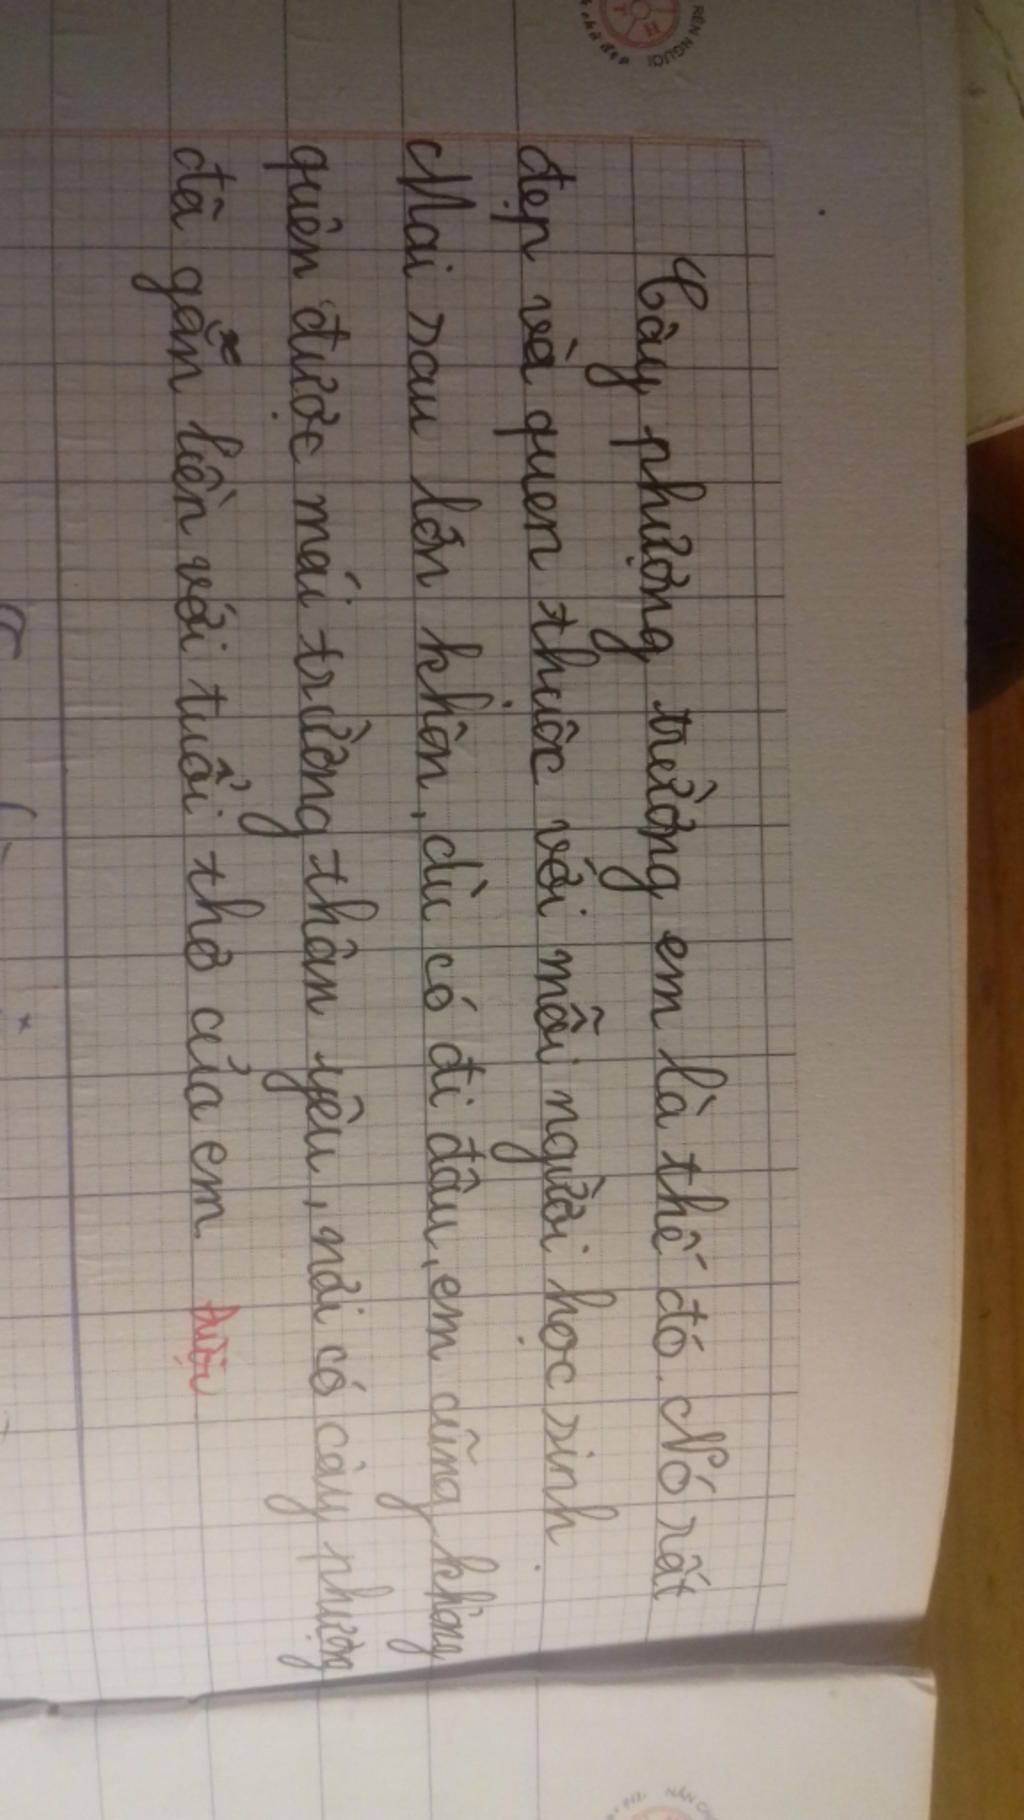 Cây phượng trường em là thế đó. Nó rất
đẹp và quen thuộc với mỗi người học sinh.
Mai sau lớn khôn, dù có đi đâu, em cũng không
quên được mái trường thân yêu, nơi có cây phượng
đã gắn liền với tuổi thơ của em